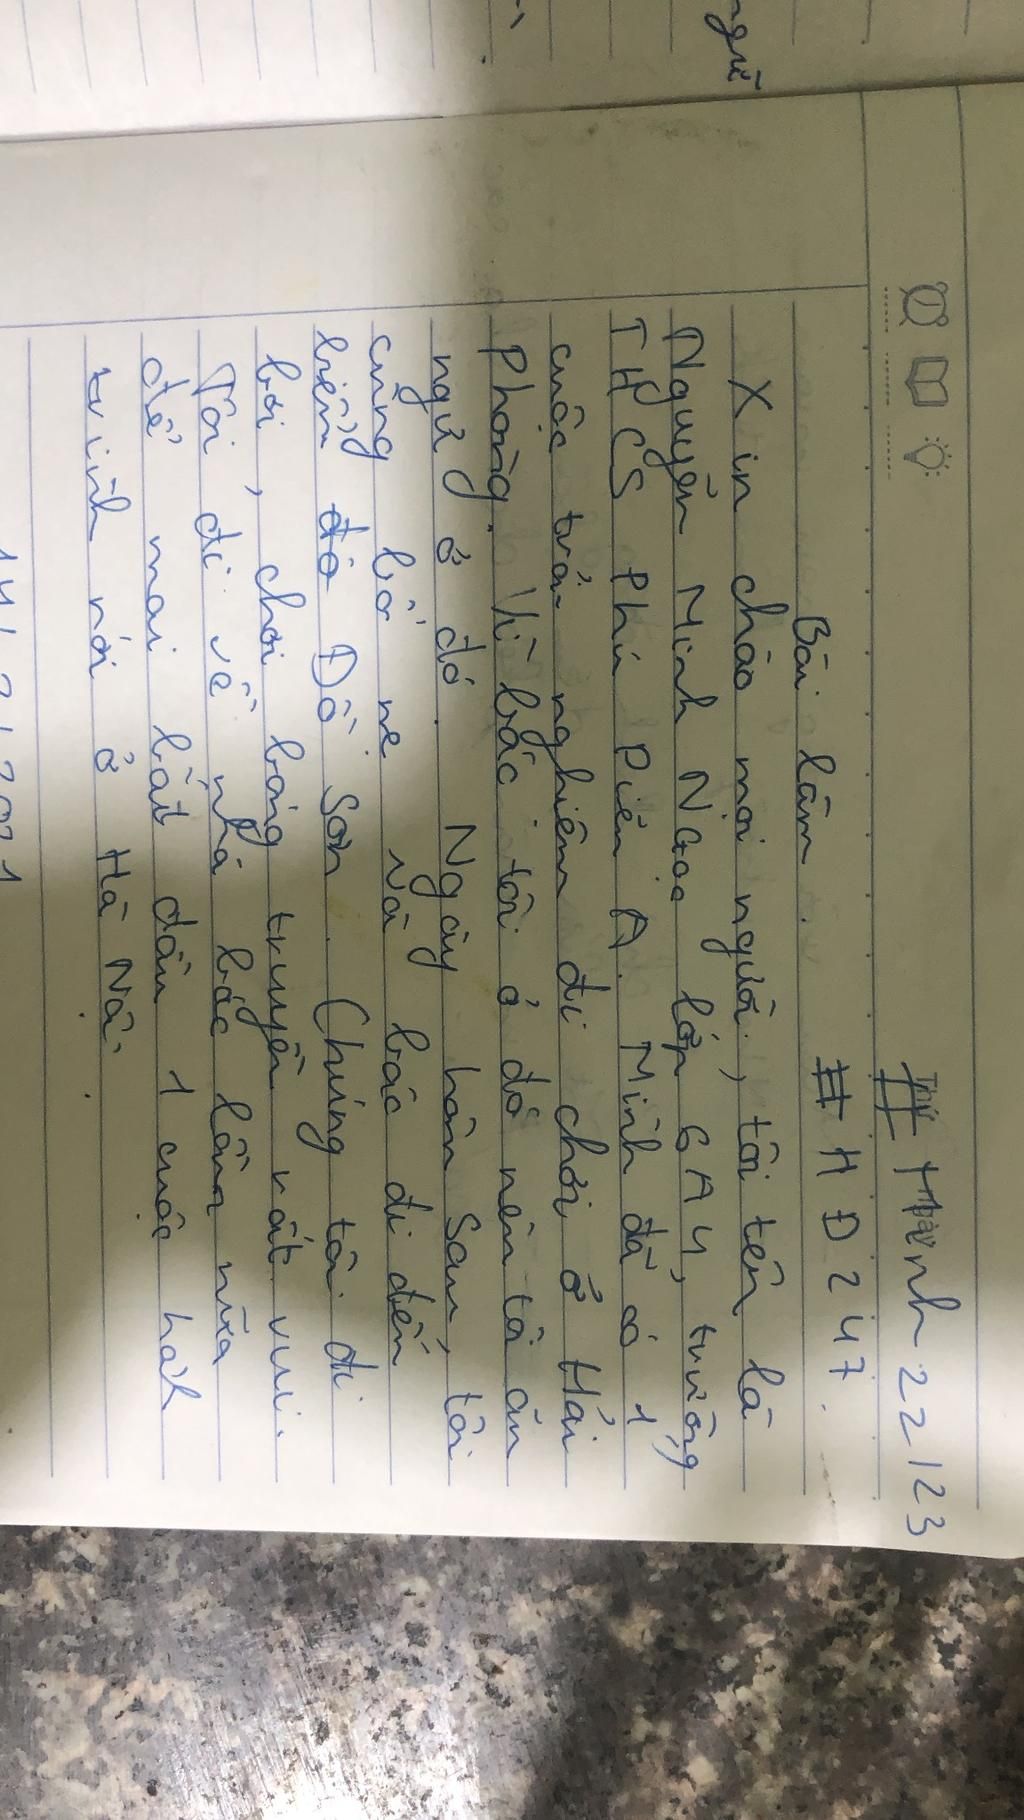 ngữ
#Hạnh22123
#HD247.
Bài làm.
Xin chào mọi người, tôi tên là
Nguyễn Minh Ngọc lớp 6A4, trường
THCS Phú Diễn A. Mình đã có 1
cuộc trải nghiệm đi chơi ở Hải
Phòng. Vì bác tôi ở đó nên tô ăn
ngủ ở đó. Ngày hôm sau, tôi
cùng bố mẹ và bác đi đến
biển đô Đồ Sơn. Chúng tôi đi
bơi, chơi bóng truyền rất vui.
Tôi đi về nhà bác lần nữa
để mai bắt đầu 1 cuộc hàh
trình mới ở Hà Nội.
14/2/2021